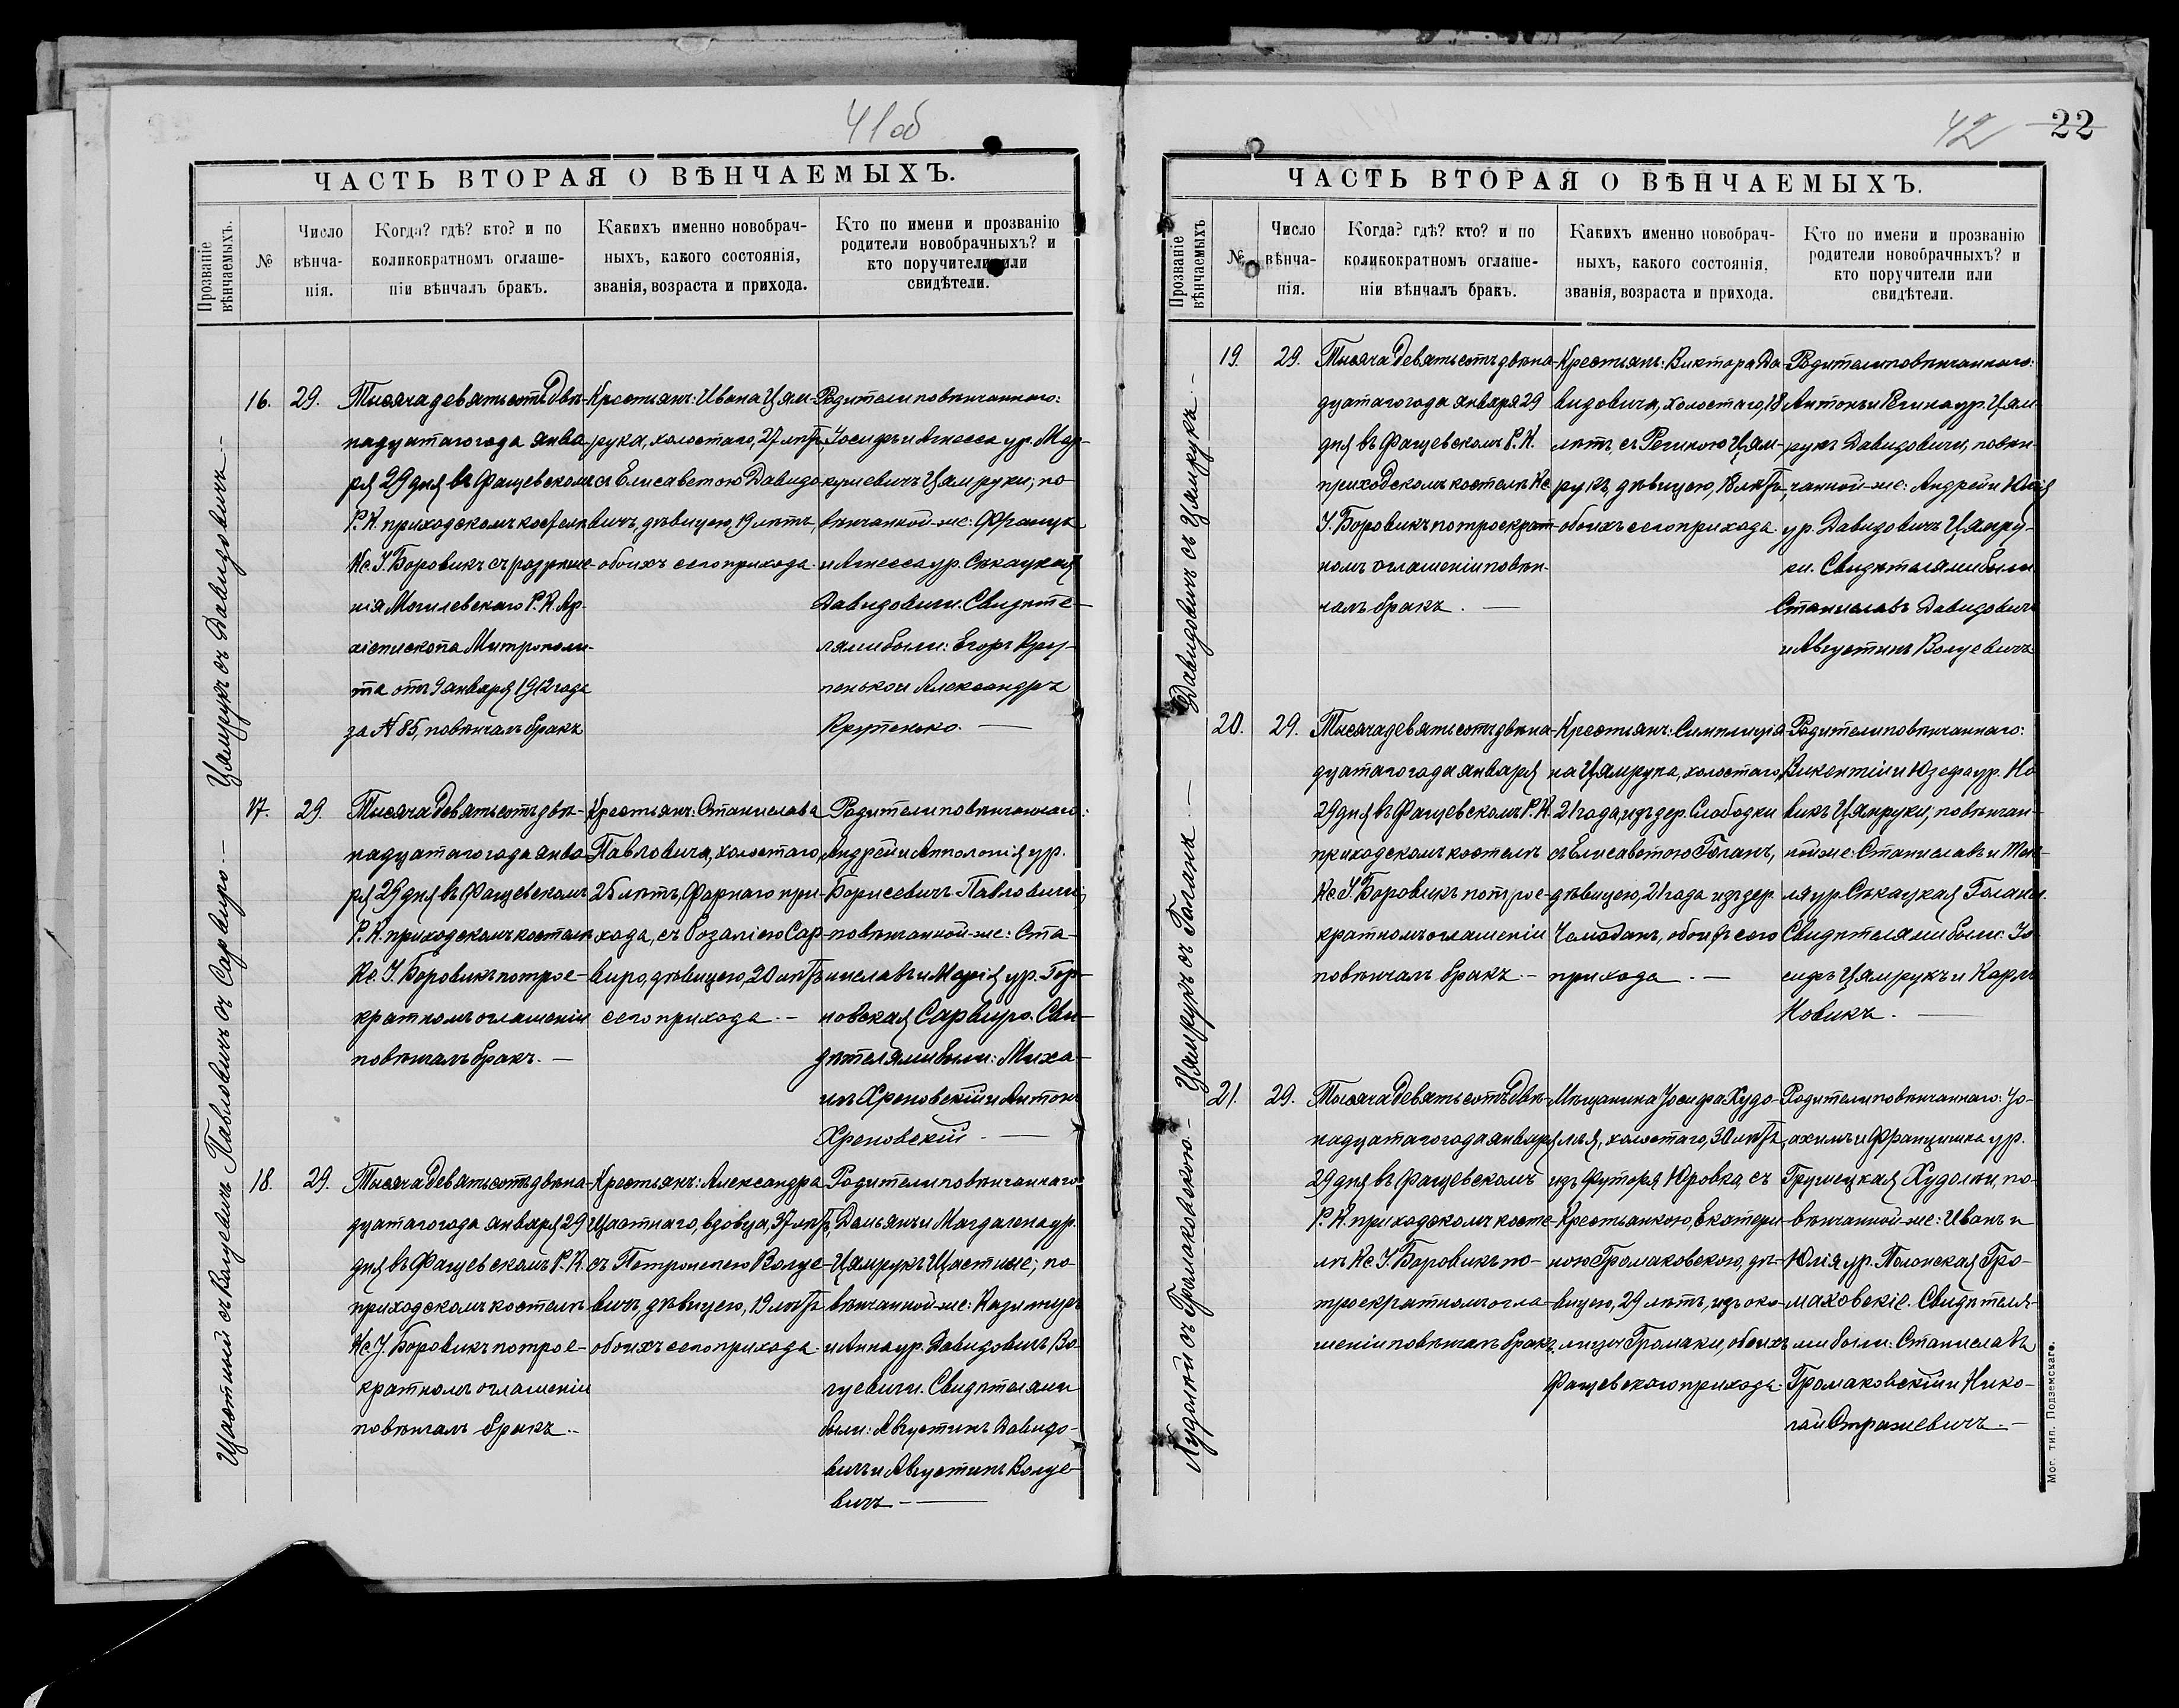 41об
ЧАСТЬ ВТОРАЯ О ВѢНЧАЕМЫХЪ.
Прозваніе вѣнчаемыхъ.
№
Число вѣнча-нія.
Когда? гдѣ? кто? и по
коликократномъ оглаше-
ніи вѣнчалъ бракъ.
Какихъ именно новобрач-
ныхъ, какого состоянія,
званія, возраста и прихода.
Кто по имени и прозванію
родители новобрачныхъ? и
кто поручители или
свидѣтели.
Цямрукъ съ Давидовичъ.—
16.
29.
Тысяча девятьсотъ двѣ-
надцатаго года янва-
ря 29 дня въ Фащевскомъ
Р. К. приходскомъ костелѣ
Кс. І. Боровикъ съ разрѣше-
нія Могилевскаго Р. К. Ар-
хіепископа Митрополи-
та отъ 9 января 1912 года
за № 85, повѣнчалъ бракъ
Крестьянъ: Ивана Цям-
рука, холостаго, 27 лѣтъ,
съ Елисаветою Давидо-
вичъ, дѣвицею, 19 лѣтъ,
обоихъ сего прихода.
Родители повѣнчаннаго:
Іосифъ и Агнесса ур. Мар-
кушевичъ Цямруки; по-
вѣнчанной-же: Францъ
и Агнесса ур. Сѣкацкая
Давидовичи. Свидѣте-
лями были: Егоръ Кру-
пенько и Александръ
Крупенько. —
Павловичъ съ Сарвиро.—
17.
29.
Тысяча девятьсотъ двѣ-
надцатаго года янва-
ря 29 дня въ Фащевскомъ
Р. К. приходскомъ костелѣ
Кс. І. Боровикъ по трое-
кратномъ оглашеніи
повѣнчалъ бракъ. —
Крестьянъ: Станислава
Павловича, холостаго,
25 лѣтъ, Фарнаго при-
хода, съ Розаліею Сар-
виро, дѣвицею, 20 лѣтъ
сего прихода. —
Родители повѣнчаннаго:
Андрей и Апполонія ур.
Борисевичъ Павловичи;
повѣнчанной-же: Ста-
ниславъ и Марія ур. Гор-
новская Сарвиро. Сви-
дѣтелями были: Миха-
илъ Хреновскій и Антонъ
Хреновскій. —
Щастный съ Валуевичъ
18.
29.
Тысяча девятьсотъ двѣна-
дцатаго года января 29
дня въ Фащевскомъ Р. К.
приходскомъ костелѣ
Кс. І. Боровикъ по трое-
кратномъ оглашеніи
повѣнчалъ бракъ.—
Крестьянъ: Александра
Щастнаго, вдовца, 37 лѣтъ,
съ Петронелею Валуе-
вичъ, дѣвицею, 19 лѣтъ
обоихъ сего прихода.
Родители повѣнчаннаго
Демьянъ и Магдалена ур.
Цямрукъ Щастные; по-
вѣнчанной-же: Казимиръ
и Анна ур. Давидовичъ Ва-
луевичи. Свидѣтелями
были: Августинъ Давидо-
вичъ и Августинъ Валуе-
вичъ. —
42
22
ЧАСТЬ ВТОРАЯ О ВѢНЧАЕМЫХЪ.
Прозваніе вѣнчаемыхъ
№
Число вѣнча-нія.
Когда? гдѣ? кто? и по
коликократномъ оглаше-
ніи вѣнчалъ бракъ.
Какихъ именно новобрач-
ныхъ, какого состоянія,
званія, возраста и прихода.
Кто по имени и прозванію
родители новобрачныхъ? и
кто поручители или
свидѣтели.
Давидовичъ съ Цямрукъ.—
19.
29.
Тысяча девятьсотъ двѣна-
дцатаго года января 29
дня въ Фащевскомъ Р. К.
приходскомъ костелѣ Кс.
І. Боровикъ по троекрат-
номъ оглашеніи повѣн-
чалъ бракъ. —
Крестьянъ: Виктора Да-
видовича, холостаго, 18
лѣтъ, съ Региною Цям-
рукъ, дѣвицею, 18 лѣтъ,
обоихъ сего прихода
Родители повѣнчаннаго:
Антонъ и Регина ур. Цям-
рукъ Давидовичи, повѣн-
чанной-же: Андрей и Юлія
ур. Давидовичъ Цямру-
ки. Свидѣтелями были
Станиславъ Давидовичъ
и Августинъ Валуевичъ
Цямрукъ съ Голанъ —
20.
29.
Тысяча девятьсотъ двѣна-
дцатаго года января
29 дня въ Фащевскомъ Р. К.
приходскомъ костелѣ
Кс. І. Боровикъ по трое-
кратномъ оглашеніи
повѣнчалъ бракъ.—
Крестьянъ: Симплиція-
на Цямрука, холостаго,
21 года, изъ дер. Слободки
съ Елисаветою Голанъ,
дѣвицею, 21 года изъ дер.
Чемоданъ, обоихъ сего
прихода. —
Родители повѣнчаннаго:
Викентій и Юзефа ур. Но-
викъ Цямруки; повѣнчан-
ной же: Станиславъ и Тек-
ля ур. Сѣкацкая Голаны.
Свидѣтелями были: Іо-
сифъ Цямрукъ и Карлъ
Новикъ. —
Худолѣй съ Громаковскою.—
21.
29.
Тысяча девятьсотъ двѣ-
надцатаго года января
29 дня въ Фащевскомъ
Р. К. приходскомъ косте-
лѣ Кс. І. Боровикъ по-
троекратномъ огла-
шеніи повѣнчалъ бракъ
Мѣщанина Іосифа Худо-
лѣя, холостаго, 30 лѣтъ,
изъ Футоря Юровка, съ
Крестьянкою, Екатери-
ною Громаковскою, дѣ-
вицею, 29 лѣтъ, изъ око-
лицы Громаки, обоихъ
Фащевскаго прихода.
Родители повѣнчаннаго: Іо-
ахимъ и Францишка ур.
Худолѣи, по-
вѣнчанной-же: Иванъ и
Юлія ур. Полонская Гро-
маковскіе. Свидѣтеля-
ми были: Станиславъ
Громаковскій и Нико-
лай Стражевичъ.—
Мог. тип. Подземскаго.